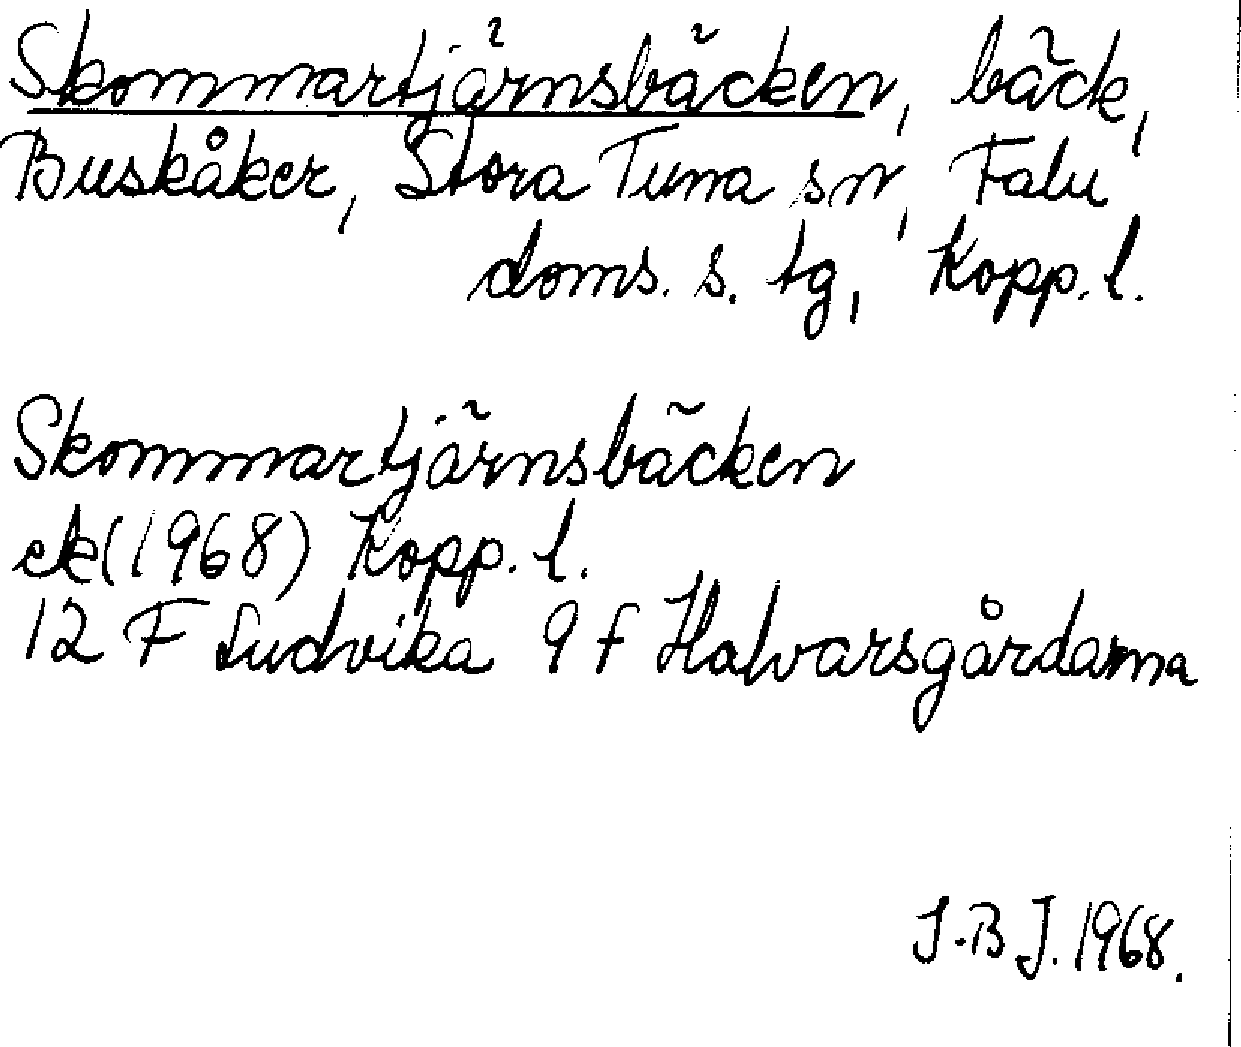 Skommartjärnsbäcken, bäck,
Buskåker, Stora Tuna sn, Falu
doms. s. tg, Kopp. l.
Skommartjärnsbäcken
ek(1968) Kopp. l.
12 F Ludvika 9 f Halvarsgårdarna
I-B J. 1968.